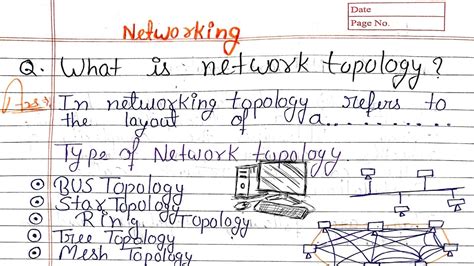 Date
Page No.
Networking
Q. What is network topology?
Ans:
In networking topology refers to
the layout of a............
Type of Network topology
BUS Topology
Star Topology
Ring Topology
Tree Topology
Mesh Topology